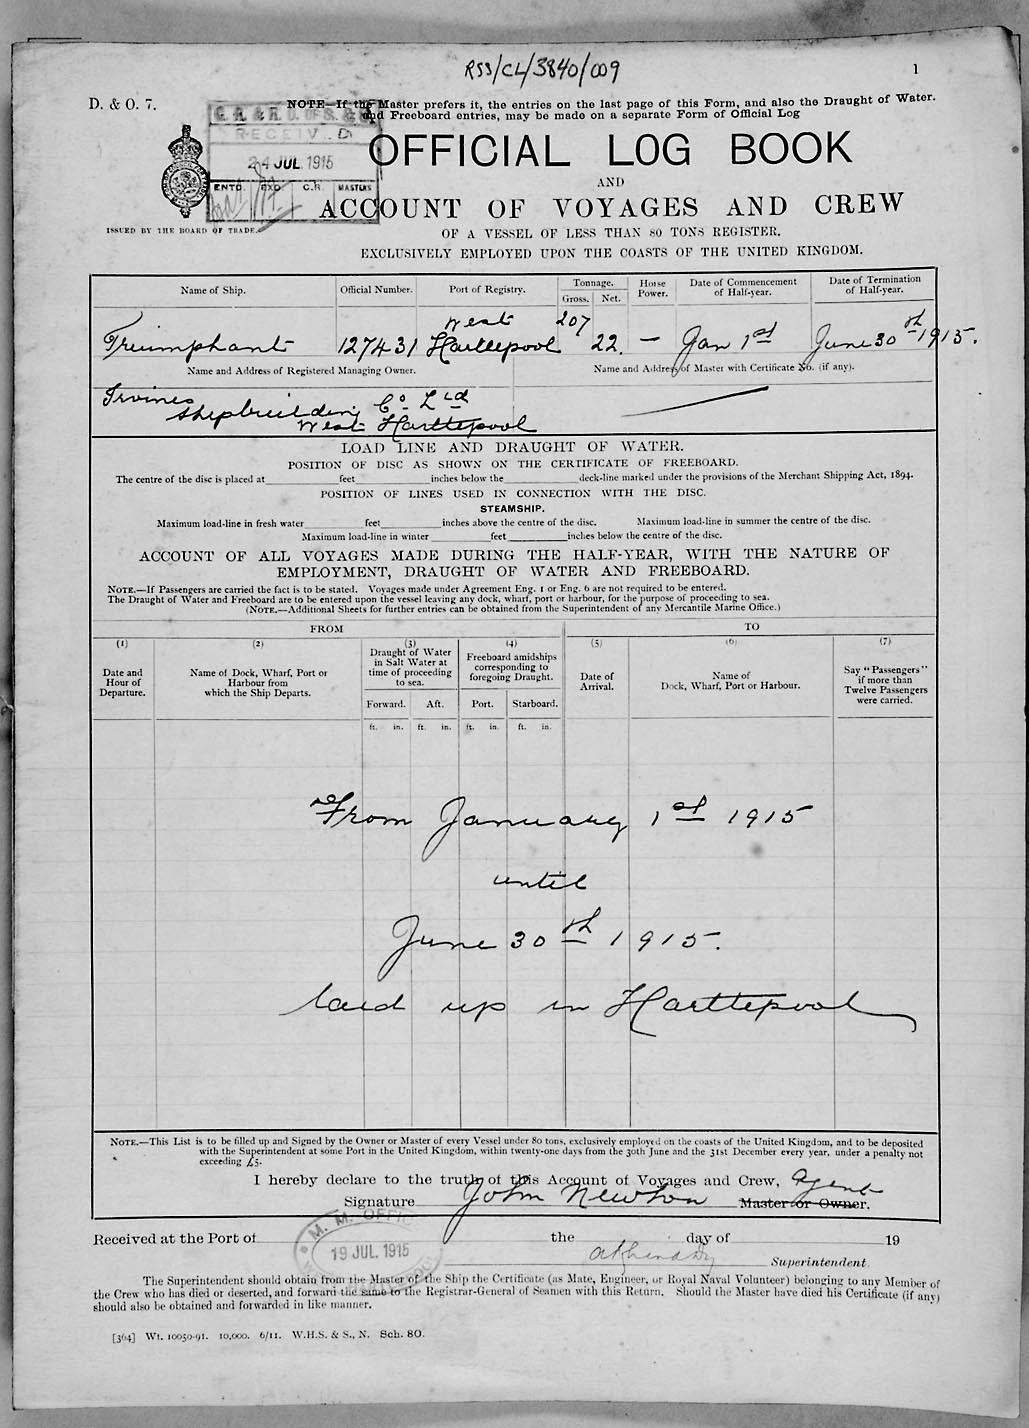 RSS/CL/3840/009
1
D. & O. 7.
NOTE—If the Master prefers it, the entries on the last page of this Form, and also the Draught of Water.
and Freeboard entries, may be made on a separate Form of Official Log
RECEIVED
24 JUL. 1915
ENTD. EXD. C.R. MASTERS
OFFICIAL LOG BOOK
AND
ACCOUNT OF VOYAGES AND CREW
ISSUED BY THE BOARD OF TRADE.
OF A VESSEL OF LESS THAN 80 TONS REGISTER,
EXCLUSIVELY EMPLOYED UPON THE COASTS OF THE UNITED KINGDOM.
Name of Ship. Official Number. Port of Registry. Tonnage. Gross. Net. Horse Power. Date of Commencement of Half-year. Date of Termination of Half-year.
Triumphant 127431 West Hartlepool 207 22. — Jan 1st June 30th 1915.
Name and Address of Registered Managing Owner. Name and Address of Master with Certificate No. (if any).
Irvines
Shipbuilding Co Ltd
West Hartlepool
LOAD LINE AND DRAUGHT OF WATER.
POSITION OF DISC AS SHOWN ON THE CERTIFICATE OF FREEBOARD.
The centre of the disc is placed at feet inches below the deck-line marked under the provisions of the Merchant Shipping Act, 1894.
POSITION OF LINES USED IN CONNECTION WITH THE DISC.
STEAMSHIP.
Maximum load-line in fresh water feet inches above the centre of the disc. Maximum load-line in summer the centre of the disc.
Maximum load-line in winter feet inches below the centre of the disc.
ACCOUNT OF ALL VOYAGES MADE DURING THE HALF-YEAR, WITH THE NATURE OF
EMPLOYMENT, DRAUGHT OF WATER AND FREEBOARD.
NOTE.—If Passengers are carried the fact is to be stated. Voyages made under Agreement Eng. 1 or Eng. 6 are not required to be entered.
The Draught of Water and Freeboard are to be entered upon the vessel leaving any dock, wharf, port or harbour, for the purpose of proceeding to sea.
(NOTE.—Additional Sheets for further entries can be obtained from the Superintendent of any Mercantile Marine Office.)
FROM TO
(1) (2) (3) (4) (5) (6) (7)
Date and Hour of Departure.
Name of Dock, Wharf, Port or Harbour from which the Ship Departs.
Draught of Water in Salt Water at time of proceeding to sea.
Freeboard amidships corresponding to foregoing Draught.
Date of Arrival.
Name of Dock, Wharf, Port or Harbour.
Say "Passengers" if more than Twelve Passengers were carried.
Forward. Aft. Port. Starboard.
ft. in. ft. in. ft. in. ft. in.
From January 1st 1915
until
June 30th 1915.
laid up in Hartlepool
NOTE.—This List is to be filled up and Signed by the Owner or Master of every Vessel under 80 tons, exclusively employed on the coasts of the United Kingdom, and to be deposited
with the Superintendent at some Port in the United Kingdom, within twenty-one days from the 30th June and the 31st December every year, under a penalty not
exceeding £5.
I hereby declare to the truth of this Account of Voyages and Crew, Agent
Signature John Newton Master or Owner.
M. M. OFFICE
19 JUL. 1915
Received at the Port of the day of 19
Superintendent.
The Superintendent should obtain from the Master of the Ship the Certificate (as Mate, Engineer, or Royal Naval Volunteer) belonging to any Member of
the Crew who has died or deserted, and forward the same to the Registrar-General of Seamen with this Return. Should the Master have died his Certificate (if any)
should also be obtained and forwarded in like manner.
[364] Wt. 10050-91. 10,000. 6/11. W.H.S. & S., N. Sch. 80.